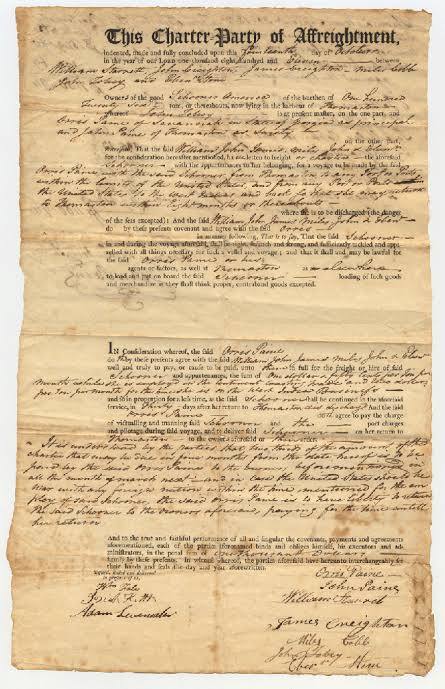 This Charter-Party of Affreightment,
indented, made and fully concluded upon this fourteenth day of October
in the year of our Lord one thousand eight hundred and Eleven between
William Starrett John Creighton James Creighton Miles Cobb
John Tobey and Eben
Owners of the good Schooner America of the burthen of One hundred
Twenty tons, or thereabouts, now lying in the harbour of Thomaston
whereof John Tobey is at present master, on the one part, and
Orris Paine of Savannah in state of Georgia as principal
and John Paine of Thomaston as Surety
on the other part,
That the said William John James Miles John & Eben
for the consideration hereafter mentioned, letten to freight or charter the aforesaid
Schooner with the appurtenances to her belonging, for a voyage to be made by the said
Orris Paine with the said Schooner from Thomaston to any Port or Ports
within the limits of the United States, and from any Port or Ports
the United States to the West Indies and back so that she may return
to Thomaston within Eight months or thereabouts
where she is to be discharged (the danger
of the seas excepted) And the said William John James Miles John & Eben
do by these presents covenant and agree with the said Orris
in manner following, That is to say, That the said Schooner
in and during the voyage aforesaid, shall be tight, staunch and strong, and sufficiently tackled and apparelled
with all things necessary for such a vessel and voyage; and that it shall and may be lawful for
the said Orris Paine his
agents or factors, as well at Thomaston as elsewhere
to load and put on board the said Schooner loading of such goods
and merchandize as they shall think proper, contraband goods excepted.
IN Consideration whereof, the said Orris Paine
do by these presents agree with the said William John James Miles John & Eben
well and truly to pay, or cause to be paid, unto them in full for the freight or hire of said
Schooner and appurtenances, the sum of One dollar & fifty cents per ton per
month while she is employed in the coasting trade and two dollars
per ton per month for the time she is in the West India
as the said Schooner shall be continued in the aforesaid
service, in Thirty days after her return to Thomaston And the said
Orris Paine doth agree to pay the charge
of victualling and manning said Schooner and the port charges
and pilotage during said voyage, and to deliver said Schooner on her return to
Thomaston to the owners aforesaid or their order.
It is understood by the parties that two thirds of the amount of this
charter that may be due in four months from the date hereof is to be
paid by the said Orris Paine to the owners beforementioned in
all the month of march next and in case the United States should be at
war with any foreign nation within the time mentioned for the employ
of said Schooner, the said Orris Paine is to have liberty to return
the said Schooner to the owners aforesaid, paying for the time untill
her return
And to the true and faithful performance of all and singular the covenants, payments and agreements
aforementioned, each of the parties aforenamed binds and obliges himself, his executors and administrators,
in the penal sum of One thousand Dollars
firmly by these presents. In witness whereof, the parties aforesaid have hereunto interchangeably set
their hands and seals the day and year aforewritten.
Signed, sealed and delivered
in presence of us,
Adam Levensaler
Orris Paine
John Paine
William Starrett
James Creighton
Miles Cobb
John Tobey
Eben